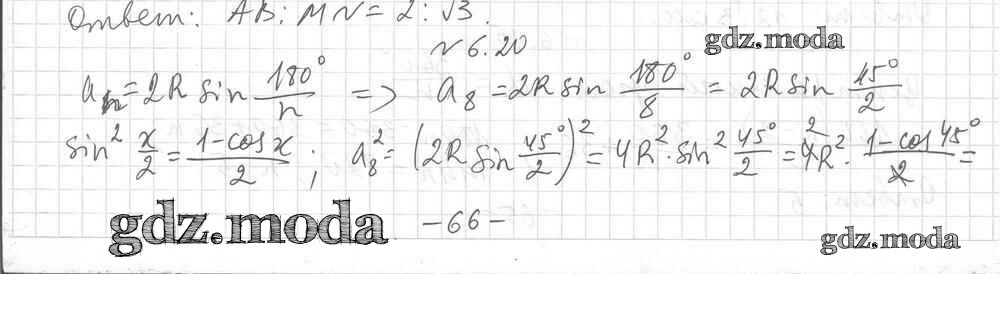 Ответ: AB : MN = 2 : √3.
№ 6.20
gdz.moda
aₙ = 2R sin 180°/n => a₈ = 2R sin 180°/8 = 2R sin 45°/2
sin² x/2 = (1 - cos x)/2 ; a₈² = (2R sin 45°/2)² = 4R² · sin² 45°/2 = 4R² · (1 - cos 45°)/2 =
gdz.moda
- 66 -
gdz.moda